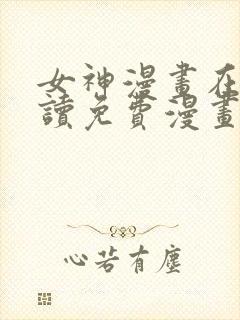 女神漫畫在
讀免費漫畫
心若有塵